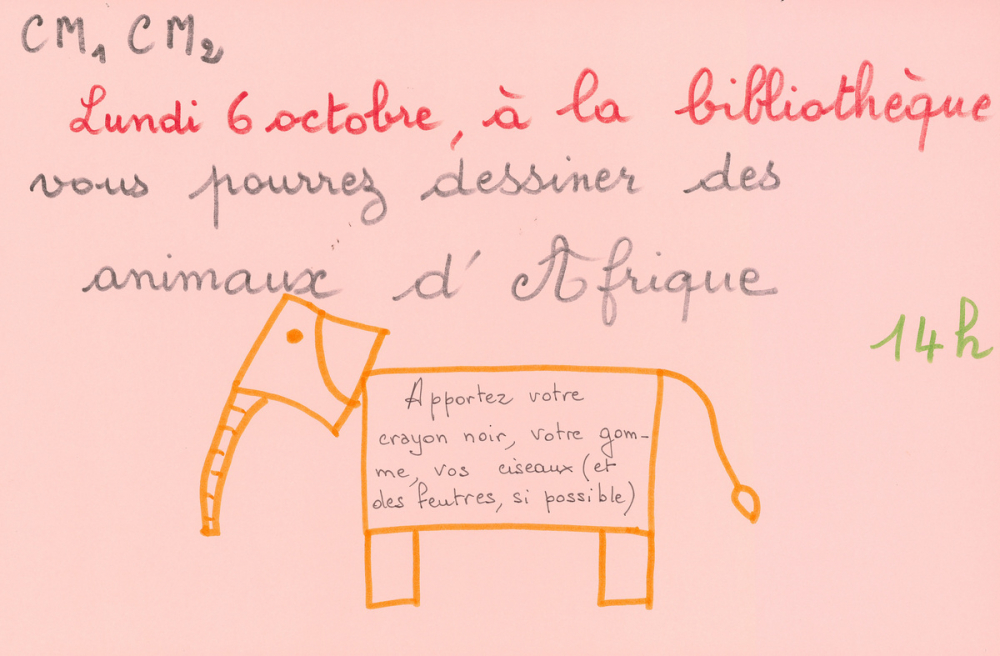 CM1 CM2
Lundi 6 octobre, à la bibliothèque
vous pourrez dessiner des
animaux d'Afrique
14h
Apportez votre
crayon noir, votre gom-
me, vos ciseaux (et
des feutres, si possible)